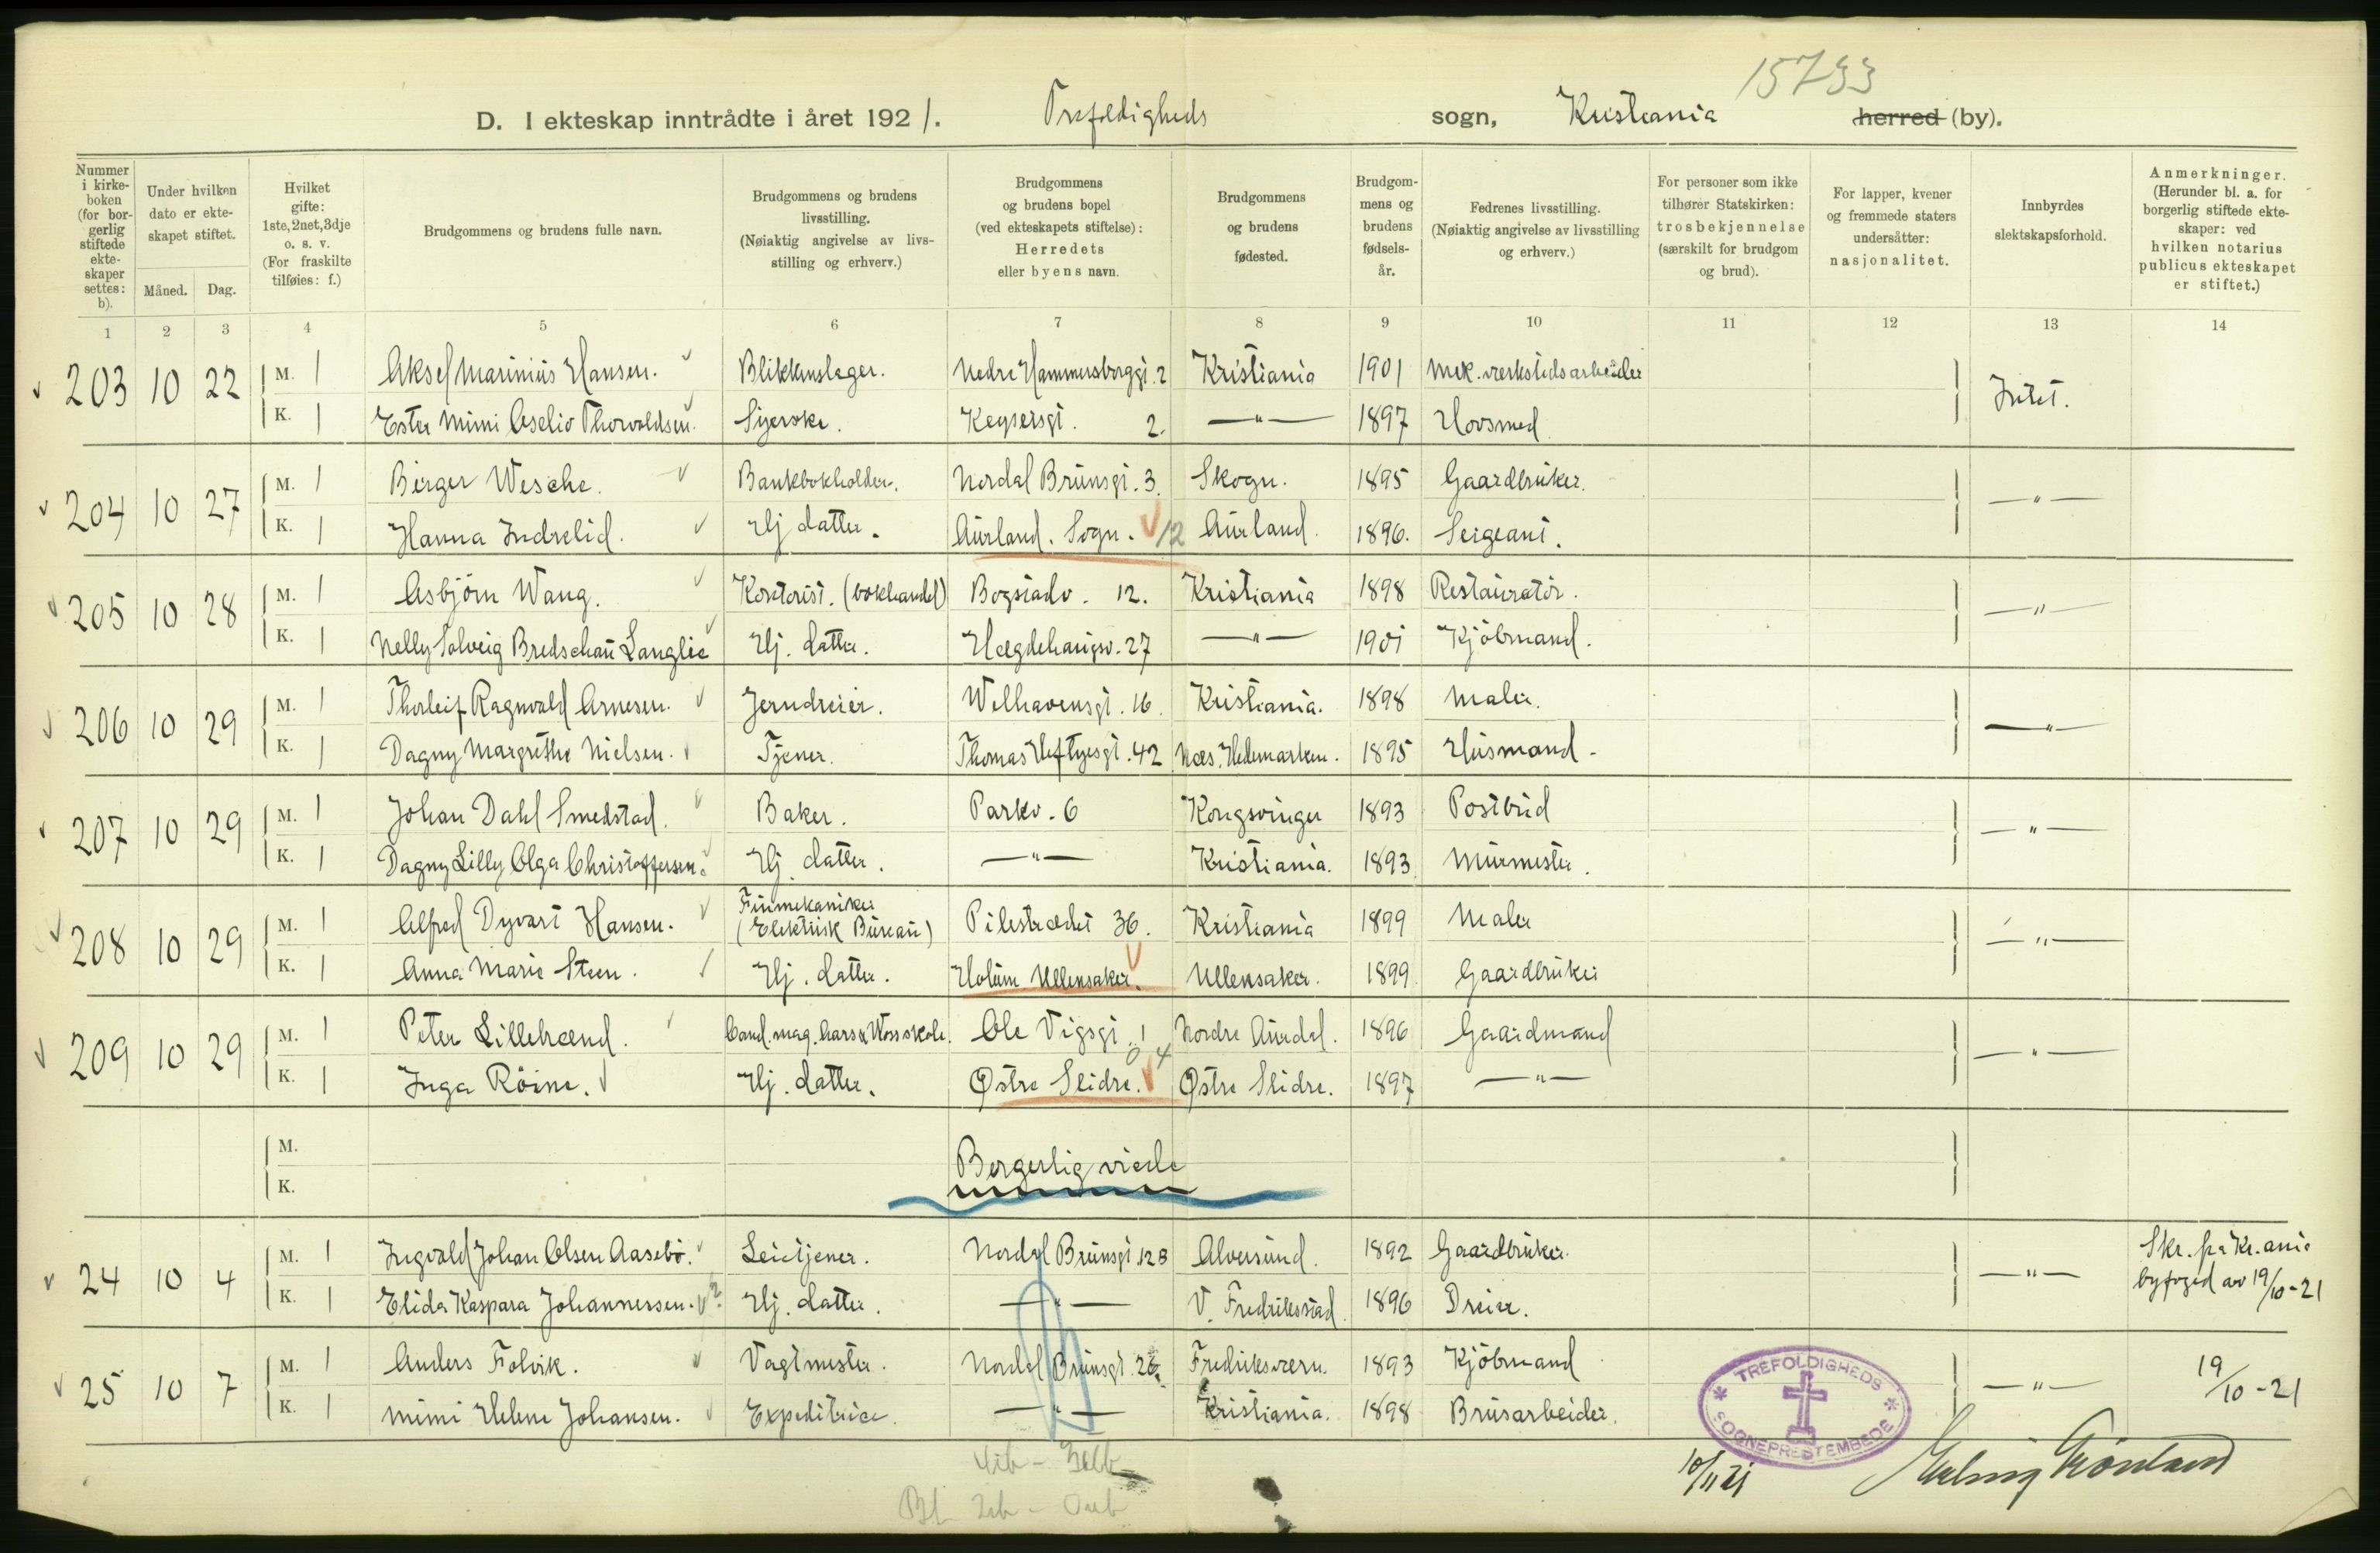 15733
D. I ekteskap inntrådte i året 1921. Trefoldigheds sogn, Kristiania herred (by).
Nummer i kirke-boken (for bor-gerlig stiftede ekte-skaper settes: b).
Under hvilken dato er ekte-skapet stiftet.
Måned. Dag.
Hvilket gifte: 1ste, 2net, 3dje o. s. v. (For fraskilte tilføies: f.)
Brudgommens og brudens fulle navn.
Brudgommens og brudens livsstilling. (Nøiaktig angivelse av livs-stilling og erhverv.)
Brudgommens og brudens bopel (ved ekteskapets stiftelse): Herredets eller byens navn.
Brudgommens og brudens fødested.
Brudgom-mens og brudens fødsels-år.
Fedrenes livsstilling. (Nøiaktig angivelse av livsstilling og erhverv.)
For personer som ikke tilhører Statskirken: trosbekjennelse (særskilt for brudgom og brud).
For lapper, kvener og fremmede staters undersåtter: nasjonalitet.
Innbyrdes slektskapsforhold.
Anmerkninger. (Herunder bl. a. for borgerlig stiftede ekte-skaper: ved hvilken notarius publicus ekteskapet er stiftet.)
1 2 3 4 5 6 7 8 9 10 11 12 13 14
203 10 22 M. 1 Aksel Marinius Hansen. Blikkenslager. Nedre Hammersborggt. 2 Kristiania 1901 Mek. verkstedsarbeider Intet.
K. 1 Ester Mimi Aselio Thorvaldsen. Syerske. Keysersgt. 2. —"— 1897 Hovsmed
204 10 27 M. 1 Birger Wesche. Bankbokholder. Nordal Brunsgt. 3. Skogn. 1895 Gaardbruker. —"—
K. 1 Hanna Indrelid. Hj. datter. Aurland. Sogn. 12 Aurland. 1896. Sergeant.
205 10 28 M. 1 Asbjörn Wang. Kontorist. (bokhandel) Bogstadv. 12. Kristiania 1898 Restauratör. —"—
K. 1 Nelly Solveig Bredschau Langlie Hj. datter. Hægdehaugsv. 27 —"— 1901 Kjöbmand.
206 10 29 M. 1 Thorleif Ragnvald Arnesen. Jerndreier. Welhavensgt. 16. Kristiania. 1898 Maler. —"—
K. 1 Dagny Margrethe Nielsen. Tjener. Thomas Heftyesgt. 42 Næs. Hedemarken. 1895 Husmand
207 10 29 M. 1 Johan Dahl Smedstad. Baker. Parkv. 6 Kongsvinger 1893 Postbud —"—
K. 1 Dagny Lilly Olga Christoffersen. Hj. datter. —"— Kristiania. 1893. Murmester.
208 10 29 M. 1 Alfred Dyvart Hansen. Finmekaniker (Elektrisk Bureau) Pilestrædet 36. Kristiania 1899 Maler —"—
K. 1 Anna Marie Steen. Hj. datter. Holum Ullensaker. Ullensaker. 1899 Gaardbruker
209 10 29 M. 1 Peter Lillebrænd. Cand. mag. Aars & Voss skole. Ole Vigsgt. 1 Nordre Aurdal. 1896 Gaardmand —"—
K. 1 Inga Röine. Hj. datter. Østre Slidre. 04 Østre Slidre. 1897 —"—
M.
K.
Borgerlig viede
24 10 4 M. 1 Ingvald Johan Olsen Aasebö. Leietjener. Nordal Brunsgt. 12 B Alversund. 1892 Gaardbruker. —"— Skr. fra Kr.ania byfoged av 19/10-21
K. 1 Elida Kaspara Johannessen. ? Hj. datter. —"— V. Fredrikstad. 1896 Dreier.
25 10 7 M. 1 Anders Folvik. Vagtmester. Nordal Brunsgt. 26 Fredriksværn. 1893 Kjöbmand —"— 19/10-21
K. 1 Mimi Helene Johansen. Expeditrice. —"— Kristiania. 1898 Brusarbeider.
TREFOLDIGHEDS SOGNEPRESTEMBEDE
10/11 21